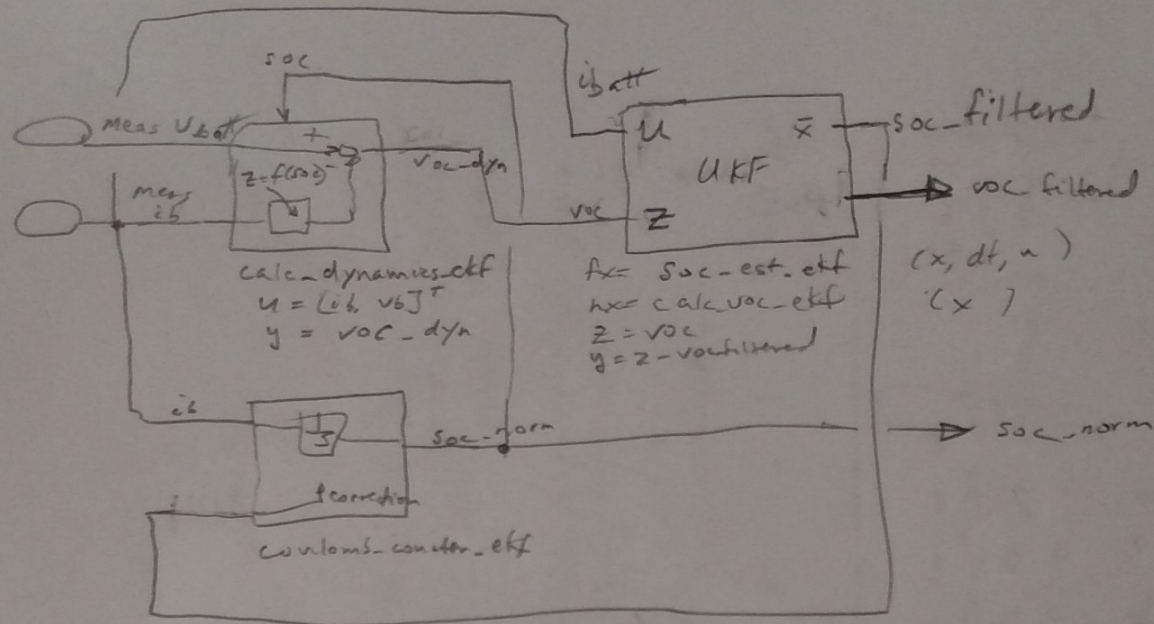 soc
ibatt
meas Vbatt
+
voc-dyn
z=f(soc)
-
meas
ib
u
x̄
soc-filtered
UKF
voc
z
voc filtered
calc-dynamics-ekf
u = [ib, vb]ᵀ
y = voc-dyn
fx= soc-est-ekf
(x, dt, u)
hx= calc voc-ekf
(x)
z = voc
y = z - vocfiltered
ib
1/s
soc-norm
soc-norm
correction
coulomb-counter-ekf